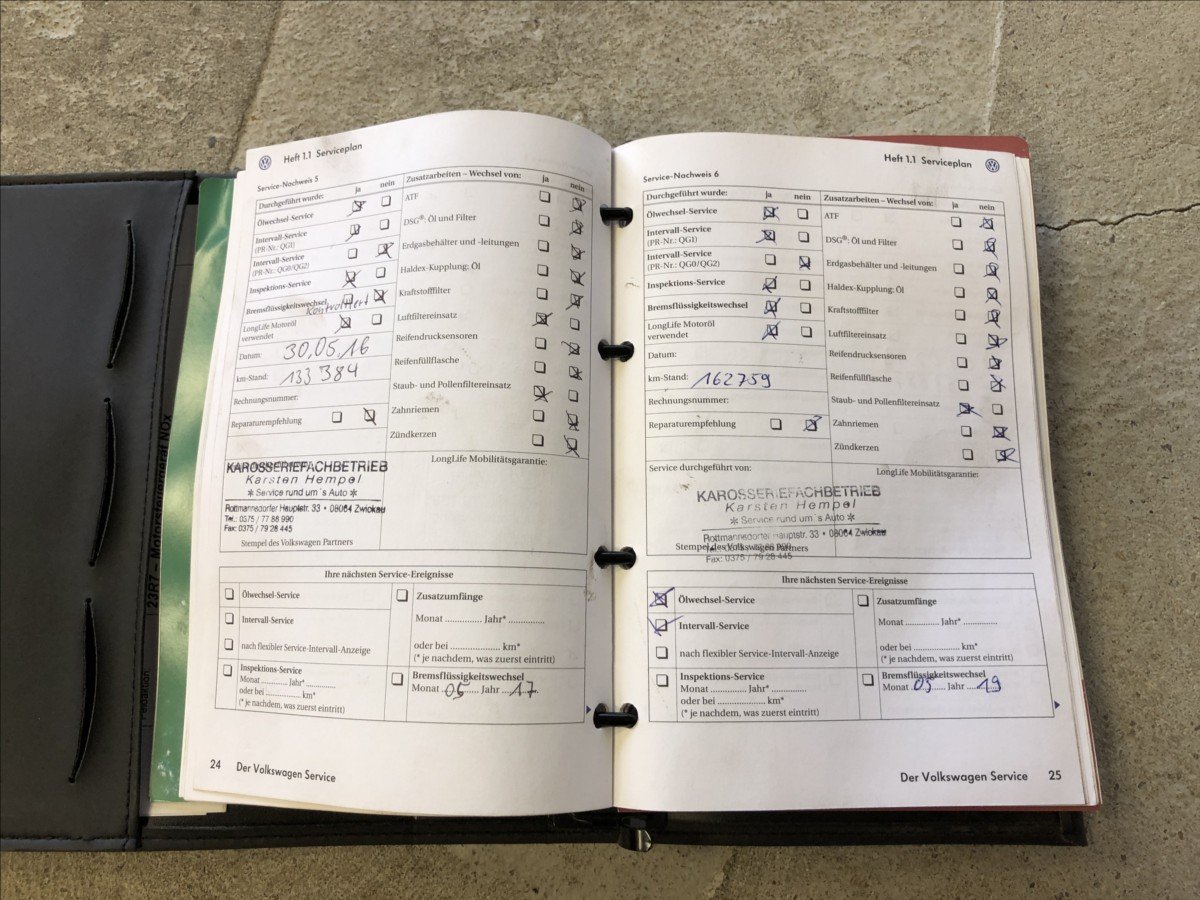 Heft 1.1 Serviceplan
Service-Nachweis 5
Durchgeführt wurde: ja nein
Ölwechsel-Service
Intervall-Service
(PR-Nr.: QG1)
Intervall-Service
(PR-Nr.: QG0/QG2)
Inspektions-Service
Bremsflüssigkeitswechsel
Kontrolliert
LongLife Motoröl
verwendet
Datum: 30.05.16
km-Stand: 133 384
Rechnungsnummer:
Reparaturempfehlung
Zusatzarbeiten – Wechsel von: ja nein
ATF
DSG®: Öl und Filter
Erdgasbehälter und -leitungen
Haldex-Kupplung: Öl
Kraftstofffilter
Luftfiltereinsatz
Reifendrucksensoren
Reifenfüllflasche
Staub- und Pollenfiltereinsatz
Zahnriemen
Zündkerzen
KAROSSERIEFACHBETRIEB
Karsten Hempel
✻ Service rund um´s Auto ✻
Rottmannsdorfer Hauptstr. 33 • 08064 Zwickau
Tel.: 0375 / 77 88 990
Fax: 0375 / 79 28 445
Stempel des Volkswagen Partners
LongLife Mobilitätsgarantie:
Ihre nächsten Service-Ereignisse
Ölwechsel-Service
Intervall-Service
nach flexibler Service-Intervall-Anzeige
Inspektions-Service
Monat ........... Jahr* ............
oder bei .............. km*
(* je nachdem, was zuerst eintritt)
Zusatzumfänge
Monat .............. Jahr* ..............
oder bei ................. km*
(* je nachdem, was zuerst eintritt)
Bremsflüssigkeitswechsel
Monat 05 Jahr 17
24 Der Volkswagen Service
Heft 1.1 Serviceplan
Service-Nachweis 6
Durchgeführt wurde: ja nein
Ölwechsel-Service
Intervall-Service
(PR-Nr.: QG1)
Intervall-Service
(PR-Nr.: QG0/QG2)
Inspektions-Service
Bremsflüssigkeitswechsel
LongLife Motoröl
verwendet
Datum:
km-Stand: 162759
Rechnungsnummer:
Reparaturempfehlung
Zusatzarbeiten – Wechsel von: ja nein
ATF
DSG®: Öl und Filter
Erdgasbehälter und -leitungen
Haldex-Kupplung: Öl
Kraftstofffilter
Luftfiltereinsatz
Reifendrucksensoren
Reifenfüllflasche
Staub- und Pollenfiltereinsatz
Zahnriemen
Zündkerzen
Service durchgeführt von:
LongLife Mobilitätsgarantie:
KAROSSERIEFACHBETRIEB
Karsten Hempel
✻ Service rund um´s Auto ✻
Rottmannsdorfer Hauptstr. 33 • 08064 Zwickau
Stempel des Volkswagen Partners
Fax: 0375 / 79 28 445
Ihre nächsten Service-Ereignisse
Ölwechsel-Service
Intervall-Service
nach flexibler Service-Intervall-Anzeige
Inspektions-Service
Monat ............. Jahr* ............
oder bei ................ km*
(* je nachdem, was zuerst eintritt)
Zusatzumfänge
Monat .............. Jahr* ..............
oder bei ................. km*
(* je nachdem, was zuerst eintritt)
Bremsflüssigkeitswechsel
Monat 05 Jahr 19
Der Volkswagen Service 25